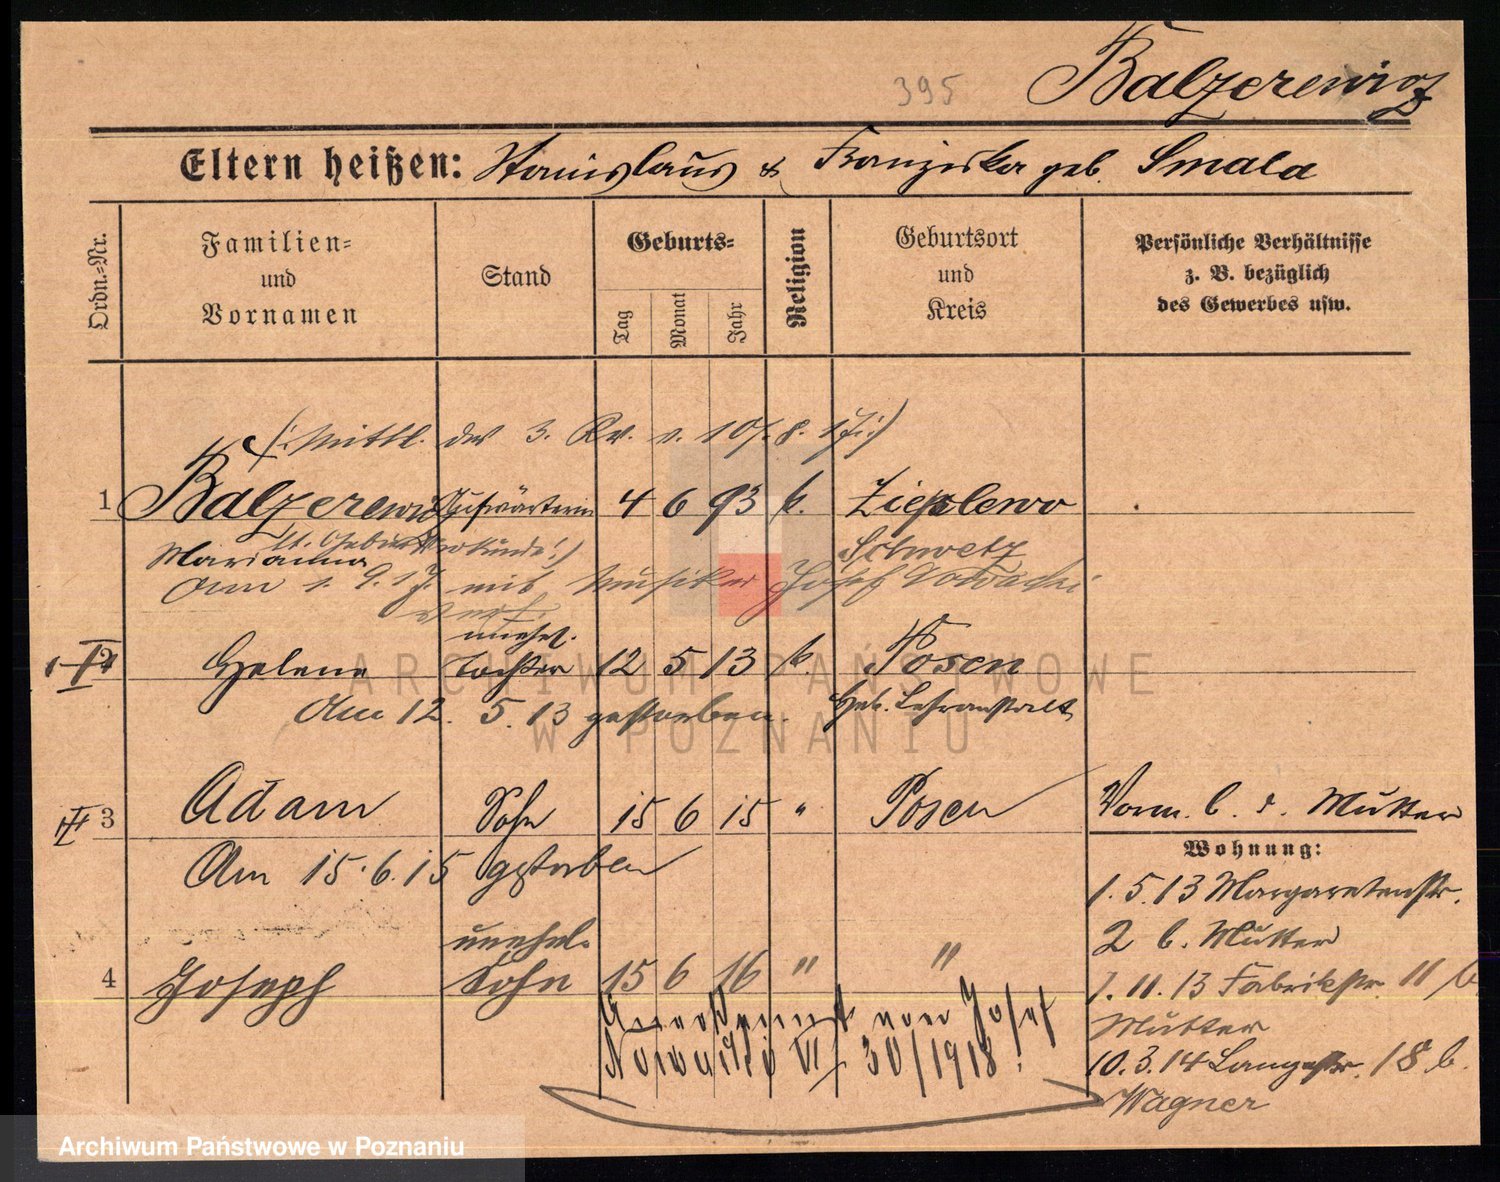 395
Balzerewicz
Eltern heißen: Stanislaus & Franziska geb. Smala
Ordn.-Nr.
Familien-
und
Vornamen
Stand
Geburts-
Tag
Monat
Jahr
Religion
Geburtsort
und
Kreis
Persönliche Verhältnisse
z. B. bezüglich
des Gewerbes usw.
(: Mittl. des 3. Rv. v. 10/8. 17 :)
1 Balzerewicz Aufwärterin 4 6 93 k. Zieplewo
lt. Geburtsurkunde :)
Marianna
Schwetz
Am 1. 9. 17 mit Musiker Josef Nowacki
verh.
unehel.
2 Helene Tochter 12 5 13 k. Posen
Am 12. 5. 13 gestorben. Heb. Lehranstalt
3 Adam Sohn 15 6 15 " Posen
Vorm. b. d. Mutter
Am 15. 6. 15 gestorben
Wohnung:
1. 5. 13 Margaretenstr.
2 b. Mutter
unehel.
4 Joseph Sohn 15 6 16 " "
1. 11. 13 Fabrikstr. 11 b.
Mutter
Anerkannt von Josef
Nowacki VI 30/1918.
10. 3. 14 Langestr. 18 b.
Wagner
ARCHIWUM PAŃSTWOWE
W POZNANIU
Archiwum Państwowe w Poznaniu